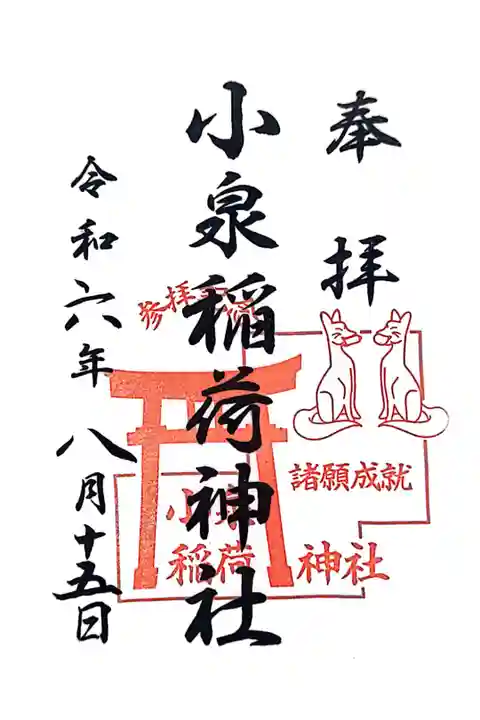 奉拝
小泉稲荷神社
令和六年八月十五日
参拝
諸願成就
小泉
稲荷神社